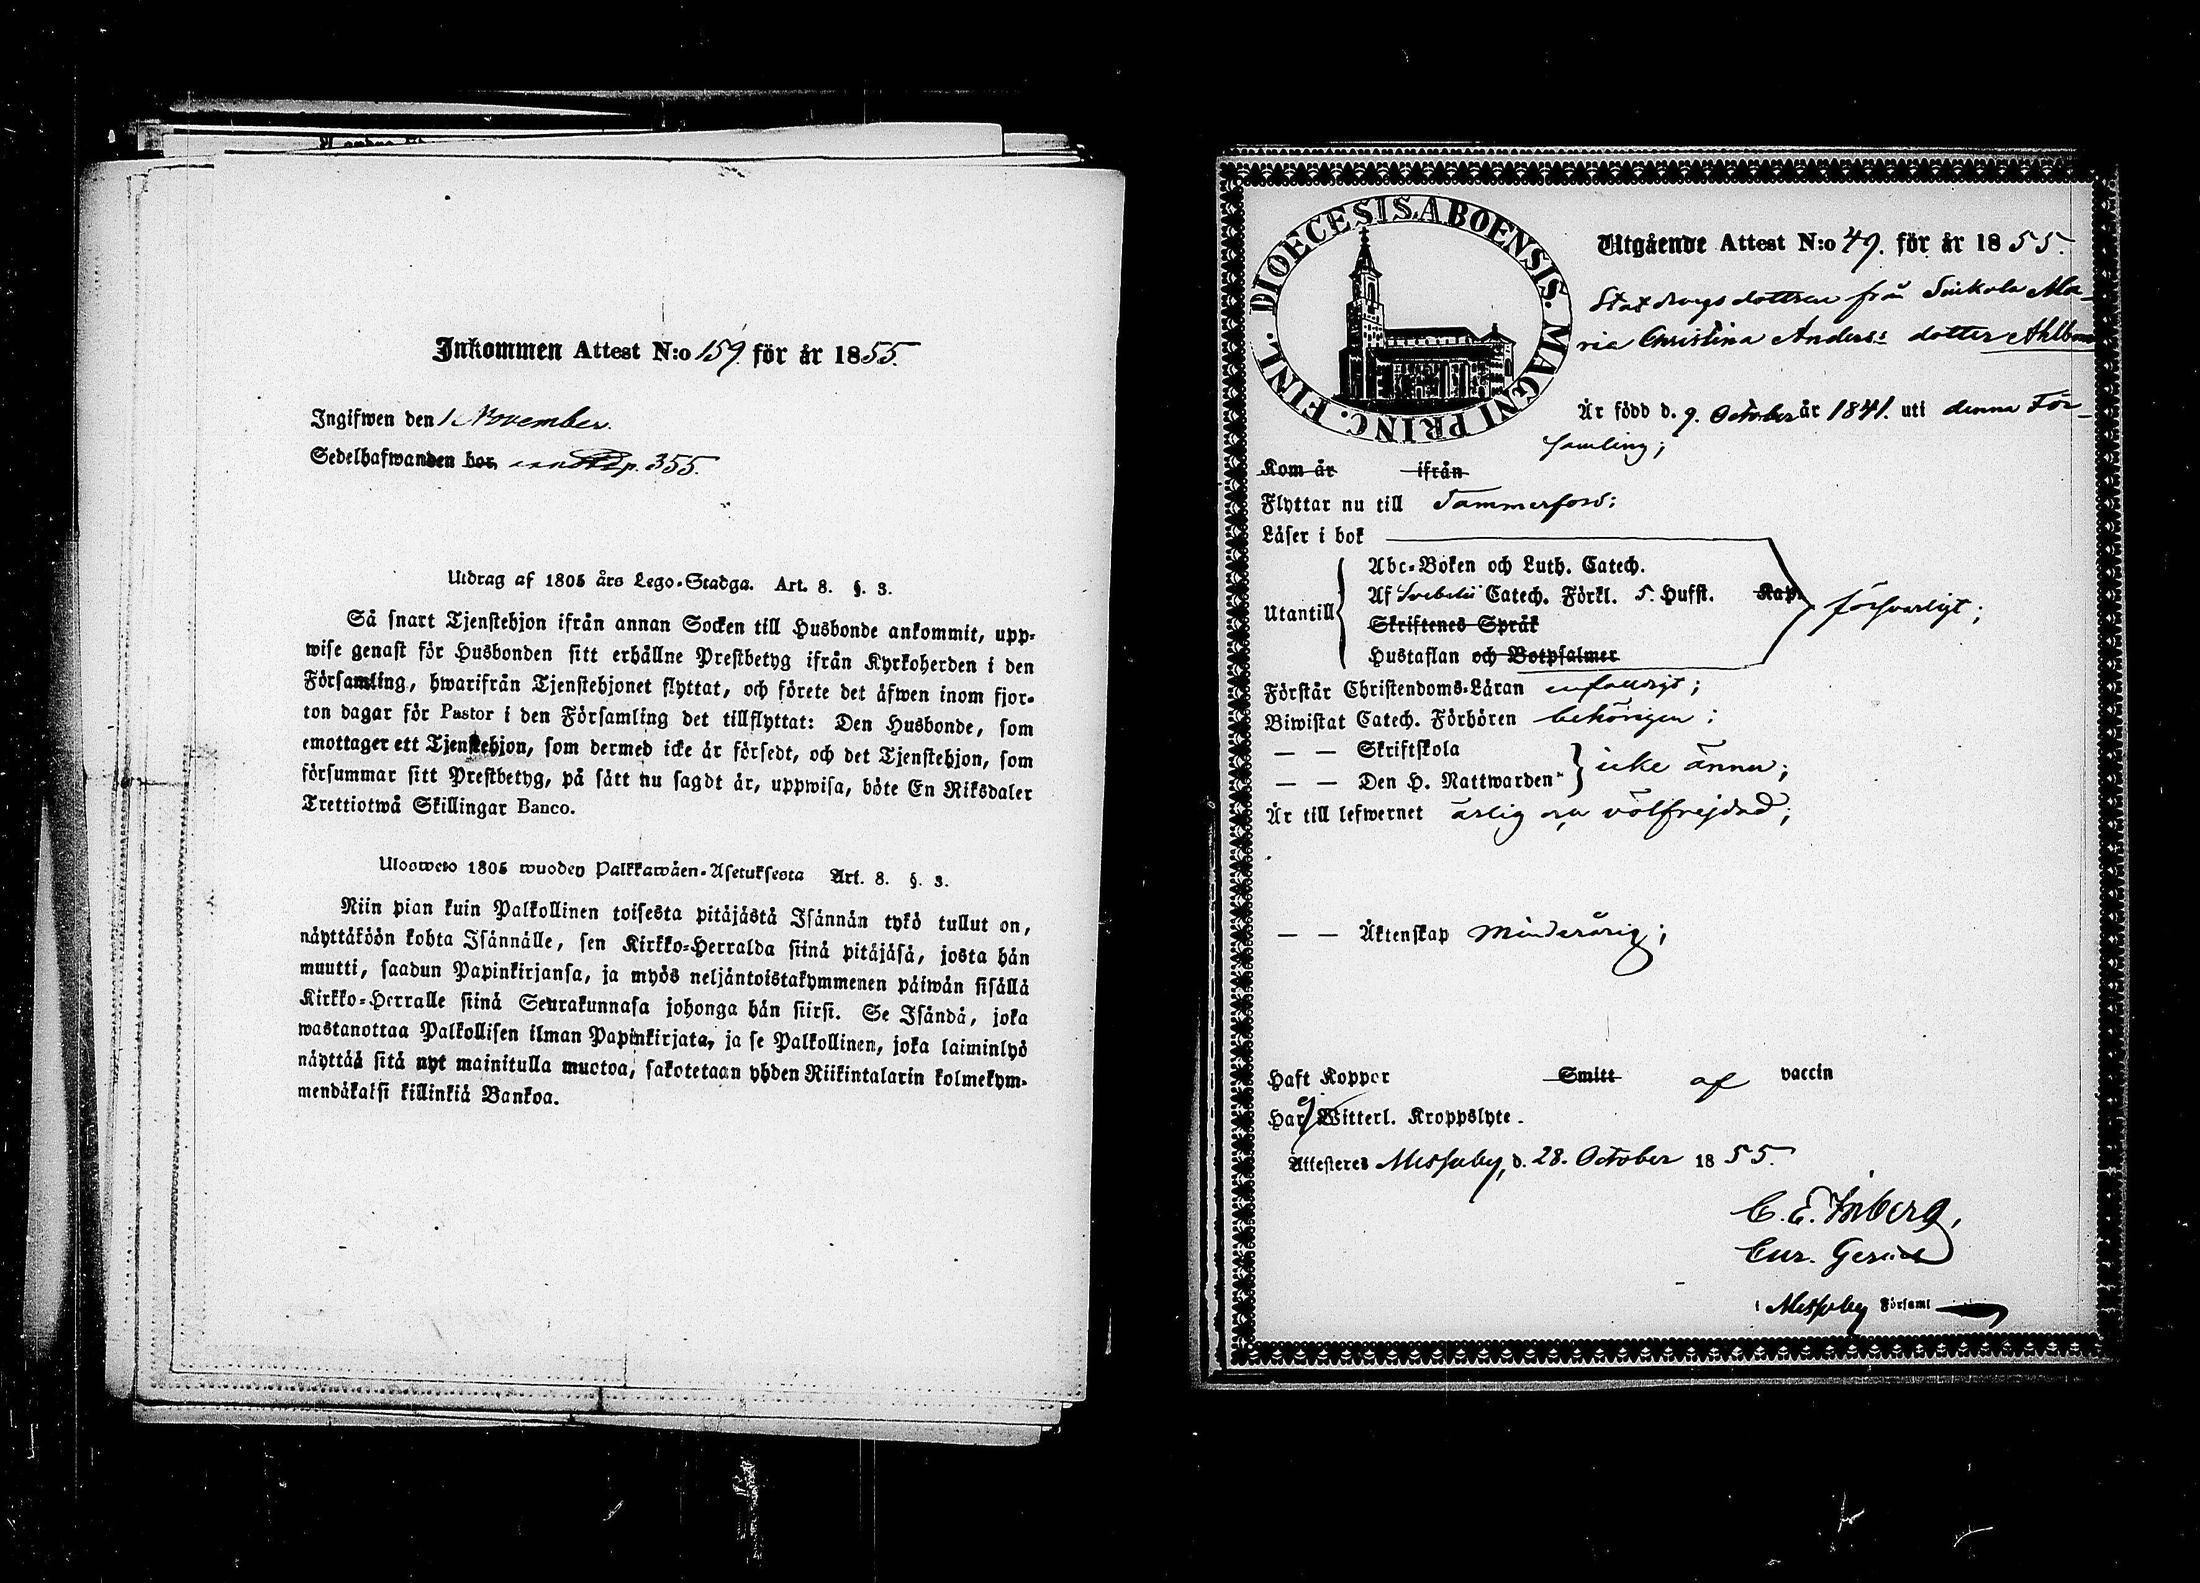 Inkommen Attest N:o 159. för år 1855.
Ingifwen den 1 November.
Sedelhafwanden bor, p. 355.
Utdrag af 1805 års Lego-Stadga. Art. 8. §. 3.
Så snart Tjenstehjon ifrån annan Socken till Husbonde ankommit, upp-
wise genast för Husbonden sitt erhållne Prestbetyg ifrån Kyrkoherden i den
Församling, hwarifrån Tjenstehjonet flyttat, och förete det äfwen inom fjor-
ton dagar för Pastor i den Församling det tillflyttat: Den Husbonde, som
emottager ett Tjenstehjon, som dermed icke är försedt, och det Tjenstehjon, som
försummar sitt Prestbetyg, på sätt nu sagdt är, uppwisa, böte En Riksdaler
Trettiotwå Skillingar Banco.
Ulosweto 1805 wuoden Palkkawäen-Asetuksesta Art. 8. §. 3.
Niin pian kuin Palkollinen toisesta pitäjästä Isännän tykö tullut on,
näyttäköön kohta Isännälle, sen Kirkko-Herralda siinä pitäjäsä, josta hän
muutti, saadun Papinkirjansa, ja myös neljäntoistakymmenen päiwän sisällä
Kirkko-Herralle siinä Seurakunnasa johonga hän siirsi. Se Isändä, joka
wastanottaa Palkollisen ilman Papinkirjata, ja se Palkollinen, joka laiminlyö
näyttää sitä nyt mainitulla muotoa, sakotetaan yhden Riikintalarin kolmekym-
mendäkaksi killinkiä Bankoa.
DIOECESIS ABOENSIS. MAGNI PRINC. FINL.
Utgående Attest N:o 49. för år 1855.
dottren från Ma-
ria Christina Anders: dotter Ahlbom
Är född d. 9. October år 1841. uti denna För-
samling;
Kom år ifrån
Flyttar nu till Tammerfors;
Läser i bok
Abc-Boken och Luth. Catech.
Utantill Af Svebelii Catech. Förkl. 5. Hufst. Kap. försvarligt;
Skriftenes Språk
Hustaflan och Botpsalmer
Förstår Christendoms-Läran enfaldigt;
Biwistat Catech. Förhören behörigen;
— — Skriftskola
— — Den H. Nattwarden icke ännu;
Är till lefwernet ärlig och välfrejdad;
— — Äktenskap Minderårig;
Haft Koppor Smitt af vaccin
Har ej Witterl. Kroppslyte.
Attesteres Messuby, d. 28. October 1855.
C. E. Inberg,
Cur. Gerens
i Messuby Församl